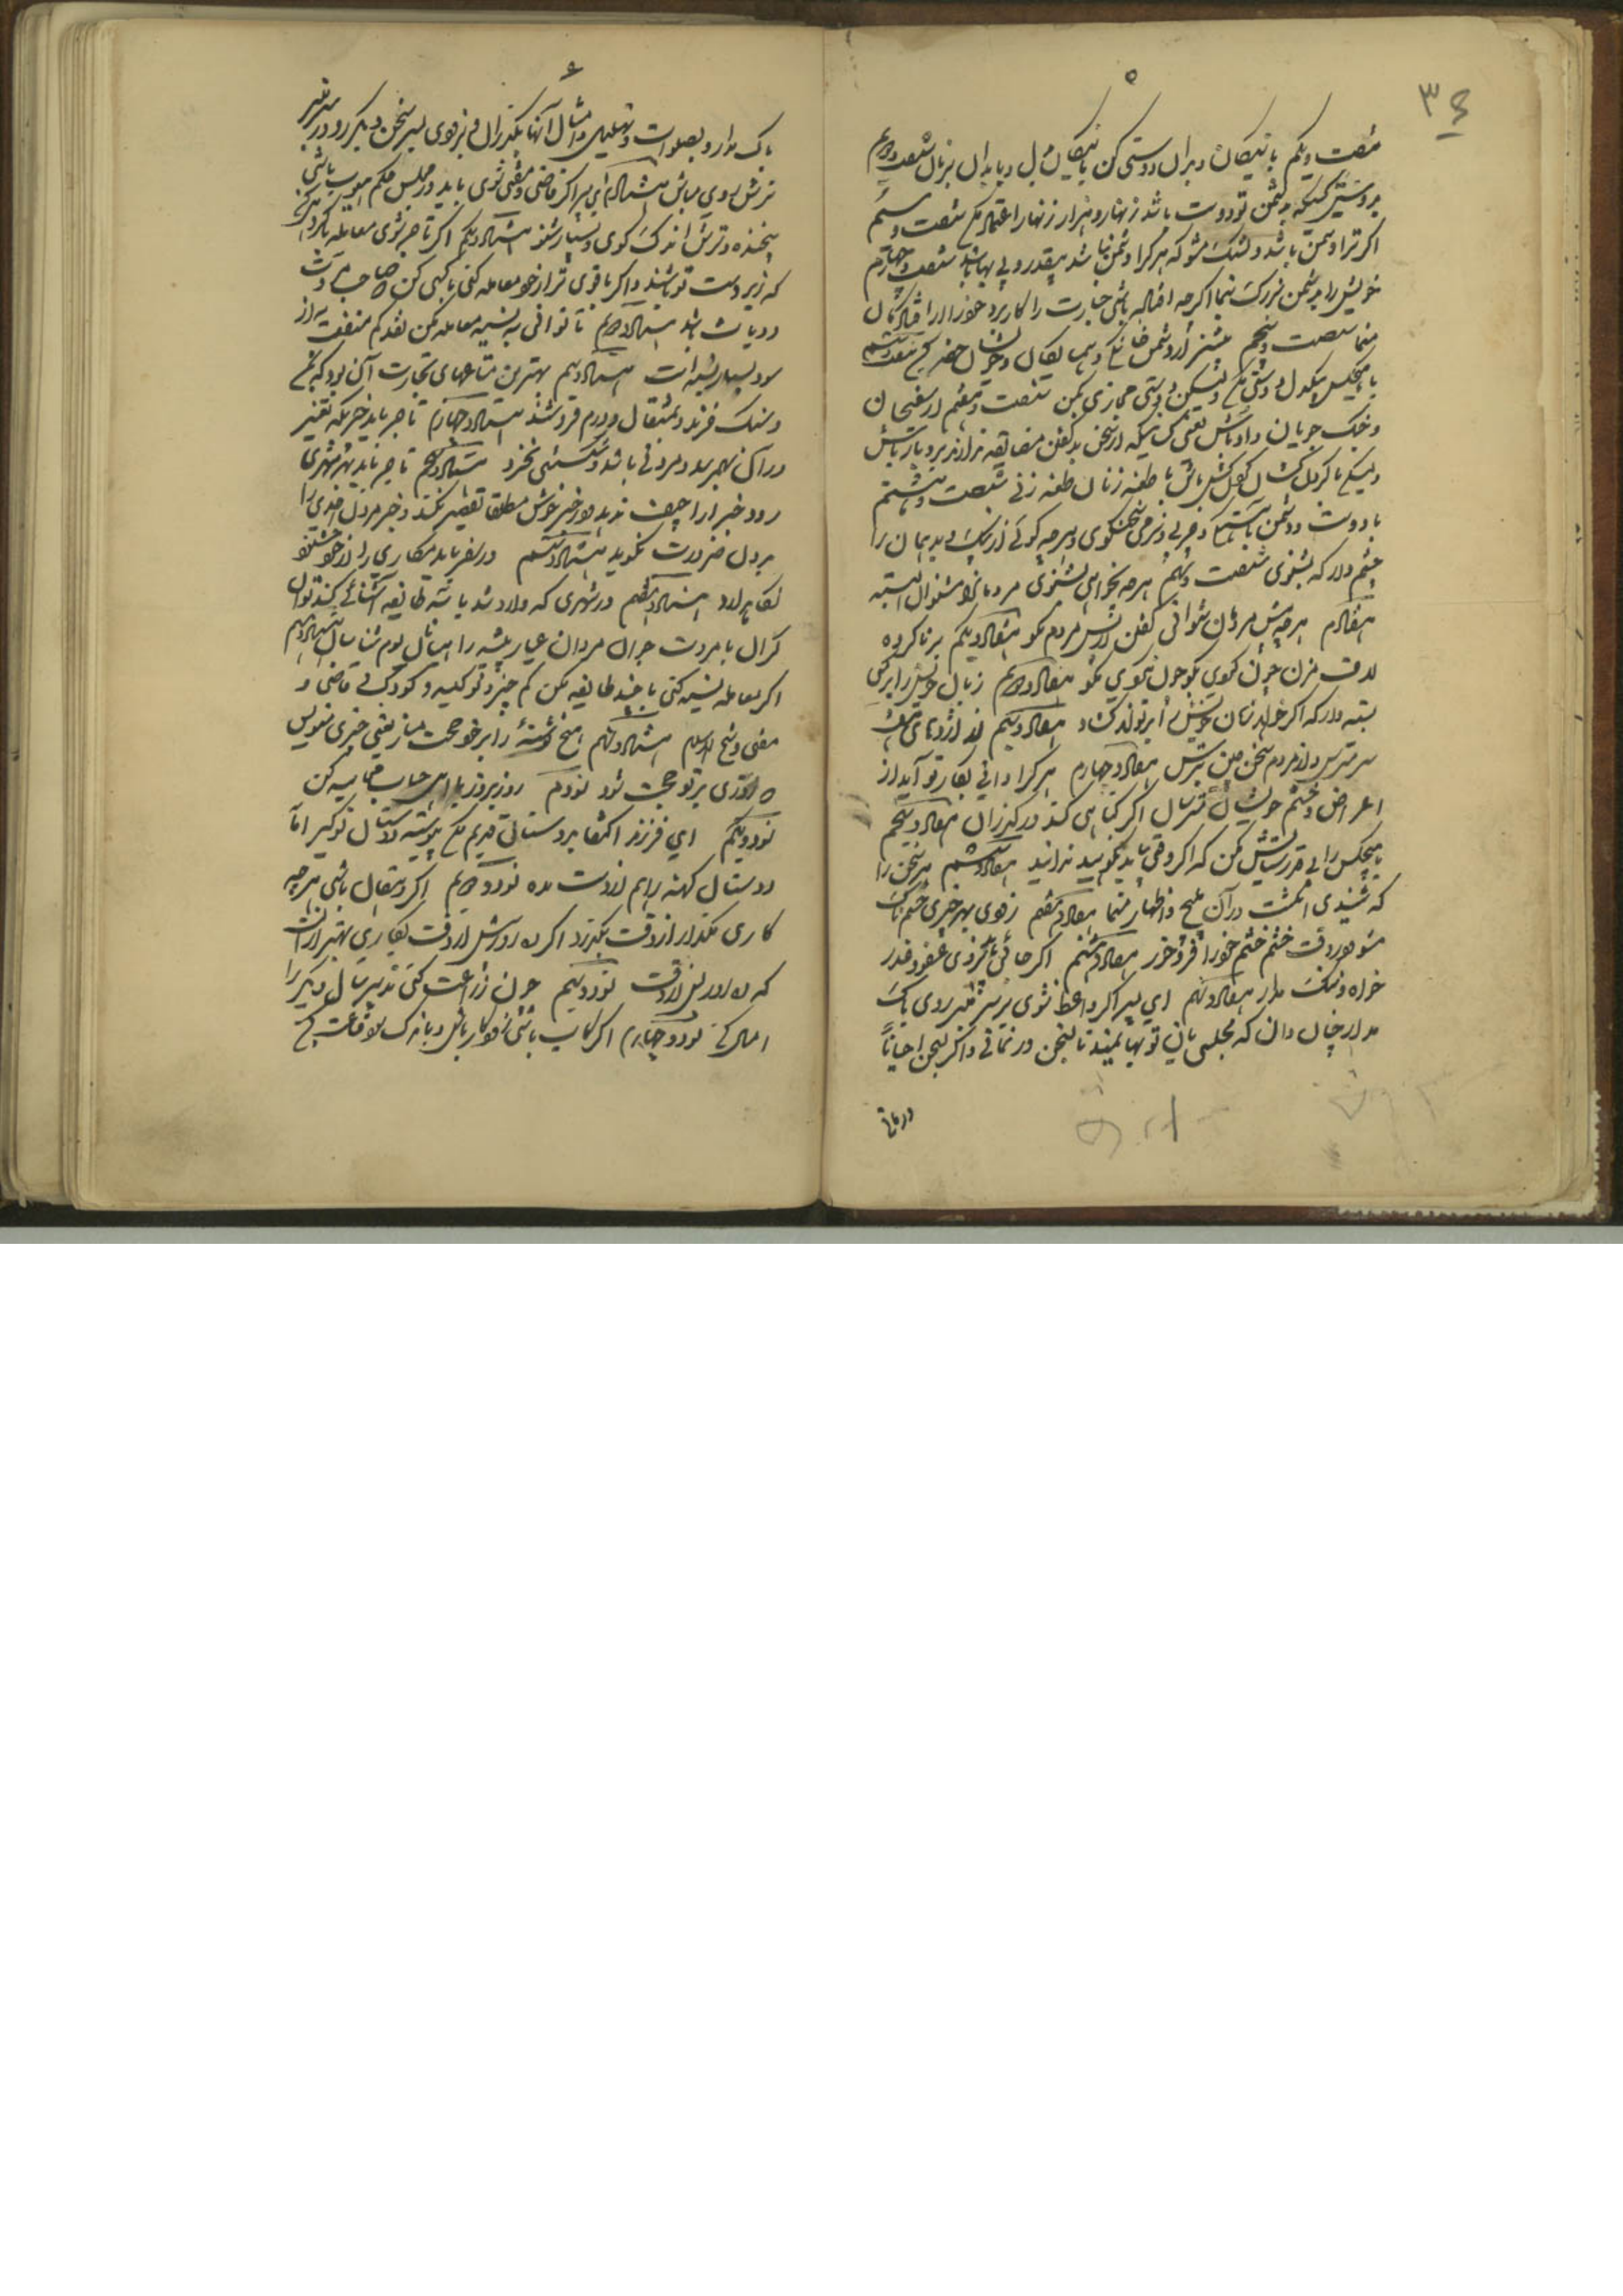 ۵
شصت و یکم با نیکان و بدان دوستی کن با نیکان بدل و با بدان بزبان شصت و دویم
بر دوستی کسیکه دشمن تو دوست باشد زنهار و هزار زنهار اعتماد مکن شصت و سیم
اگر ترا دشمن باشد دلتنگ مشو که هر کرا دشمن نباشد بیقدر و بی بها باشد شصت و چهارم
خویش را بدشمن بزرگ نما اگرچه افتاده باشی
منما شصت و پنجم از دشمن خانگی و همسایگان و خویشان حذر کن شصت و ششم
با هیچکس یکدل دوستی مکن ولیکن دوستی مجازی بکن شصت و هفتم از سفیهان
و جنک جویان دور باش
ولیکن با گردن کشان گردن کش باش با طعنه زنان طعنه زنی شصت و هشتم
با دوست و دشمن بآهستگی و چربی و نرمی سخن گوی و هرچه گوئی از نیک و بد همان را
چشم دار که بشنوی شصت و نهم هرچه نخواهی بشنوی مردمانرا مشنوان البته
هفتادم هرچه پیش مردمان نتوانی گفتن از پس مردم مگو هفتاد و یکم بر ناکرده
لاف مزن چون گوی بگو چون نگوی مگو هفتاد و دویم زبان خویش را بر کسی
بسته دار که اگر خواهد زبان خویش را بر تو تواند گشاد هفتاد و سیم از اژدهای هفت
سر مترس و از مردم سخن چین بترس هفتاد و چهارم هر کرا دانی بکار تو آید از
اعراض و خشم خویش مترسان اگر گناهی کند در گذران هفتاد و پنجم
هیچکس را بی قدر ستایش مکن که اگر وقتی باید نکوهید ندانید هفتاد و ششم هر سخن را
که شنیدی انگشت در آن منه و اظهار منما هفتاد و هفتم زودی بهر چیزی خشمناک
مشو و در وقت خشم خشم خود را فرو خور هفتاد و هشتم اگر جائی
خواه و ننک مدار هفتاد و نهم ای پسر اگر واعظ شوی بر سر منبر روی باک
مدار چنان دان که مجلسیان تو بهایمند تا بسخن در نمانی و اگر بسخن احیاناً
در مانی
۶
باک مدار و بصلوات و تهلیل و امثال آنها بگذران و بزودی بسر سخن دیگر رو و در سر منبر
ترش روی مباش هشتادم ای پسر اگر قاضی و مفتی شوی باید در مجلس حکم مهیب باشی
بیخنده و ترش اندک گوی و بسیار شنو هشتاد و یکم اگر تاجر شوی معامله با کردار کن
که زیر دست تو باشند و اگر با قوی تر از خود معامله کنی با کسی کن که صاحب مروت
و دیانت باشد هشتاد و دویم تا توانی به نسیه معامله مکن نقد کم منفعت به از
سود بسیار نسیه است هشتاد و سیم بهترین متاعهای تجارت آن بود که بمن
و سنک خرند و بمثقال و درم فروشند هشتاد و چهارم تاجر باید
در آن شهر بیند و مردنی باشد و شکستنی نخرد هشتاد و پنجم تاجر باید بهر شهری
رود خبر اراجیف ندهد و در خبر خوش مطلقا تقصیر نکند و خبر مردن احدی را
بدون ضرورت نگوید هشتاد و ششم در سفر باید مکاری را از خود خشنود
نگاه دارد هشتاد و هفتم در شهری که وارد شد با سه طایفه آشنائی کند توان
گران با مروت جوان مردان عیار پیشه راهبانان بوم شناسان هشتاد و هشتم
اگر معامله نسیه کنی با چند طایفه مکن کم چیز و نو کیسه و کودک و قاضی و
مفتی و شیخ الاسلام هشتاد و نهم هیچ نوشتهٔ را بر خود حجت مساز یعنی چیزی ننویس
که روزی بر تو حجت شود نودم روز بروز با اهل حساب محاسبه کن
نود و یکم ای فرزند اکتفا بدوستان قدیم مکن پیوسته دوستان نو گیر اما
دوستان کهنه را هم از دست مده نود و دویم اگر دهقان باشی هرچه
کاری مگذار از وقت بگذرد اگر ده روز پیش از وقت بکاری بهتر از آنست
که ده روز پس از وقت نود و سیم چون زراعت کنی تدبیر سال دیگر را
امسال کن نود و چهارم اگر کاسب باشی زود کار باش و باندک سود قناعت کن